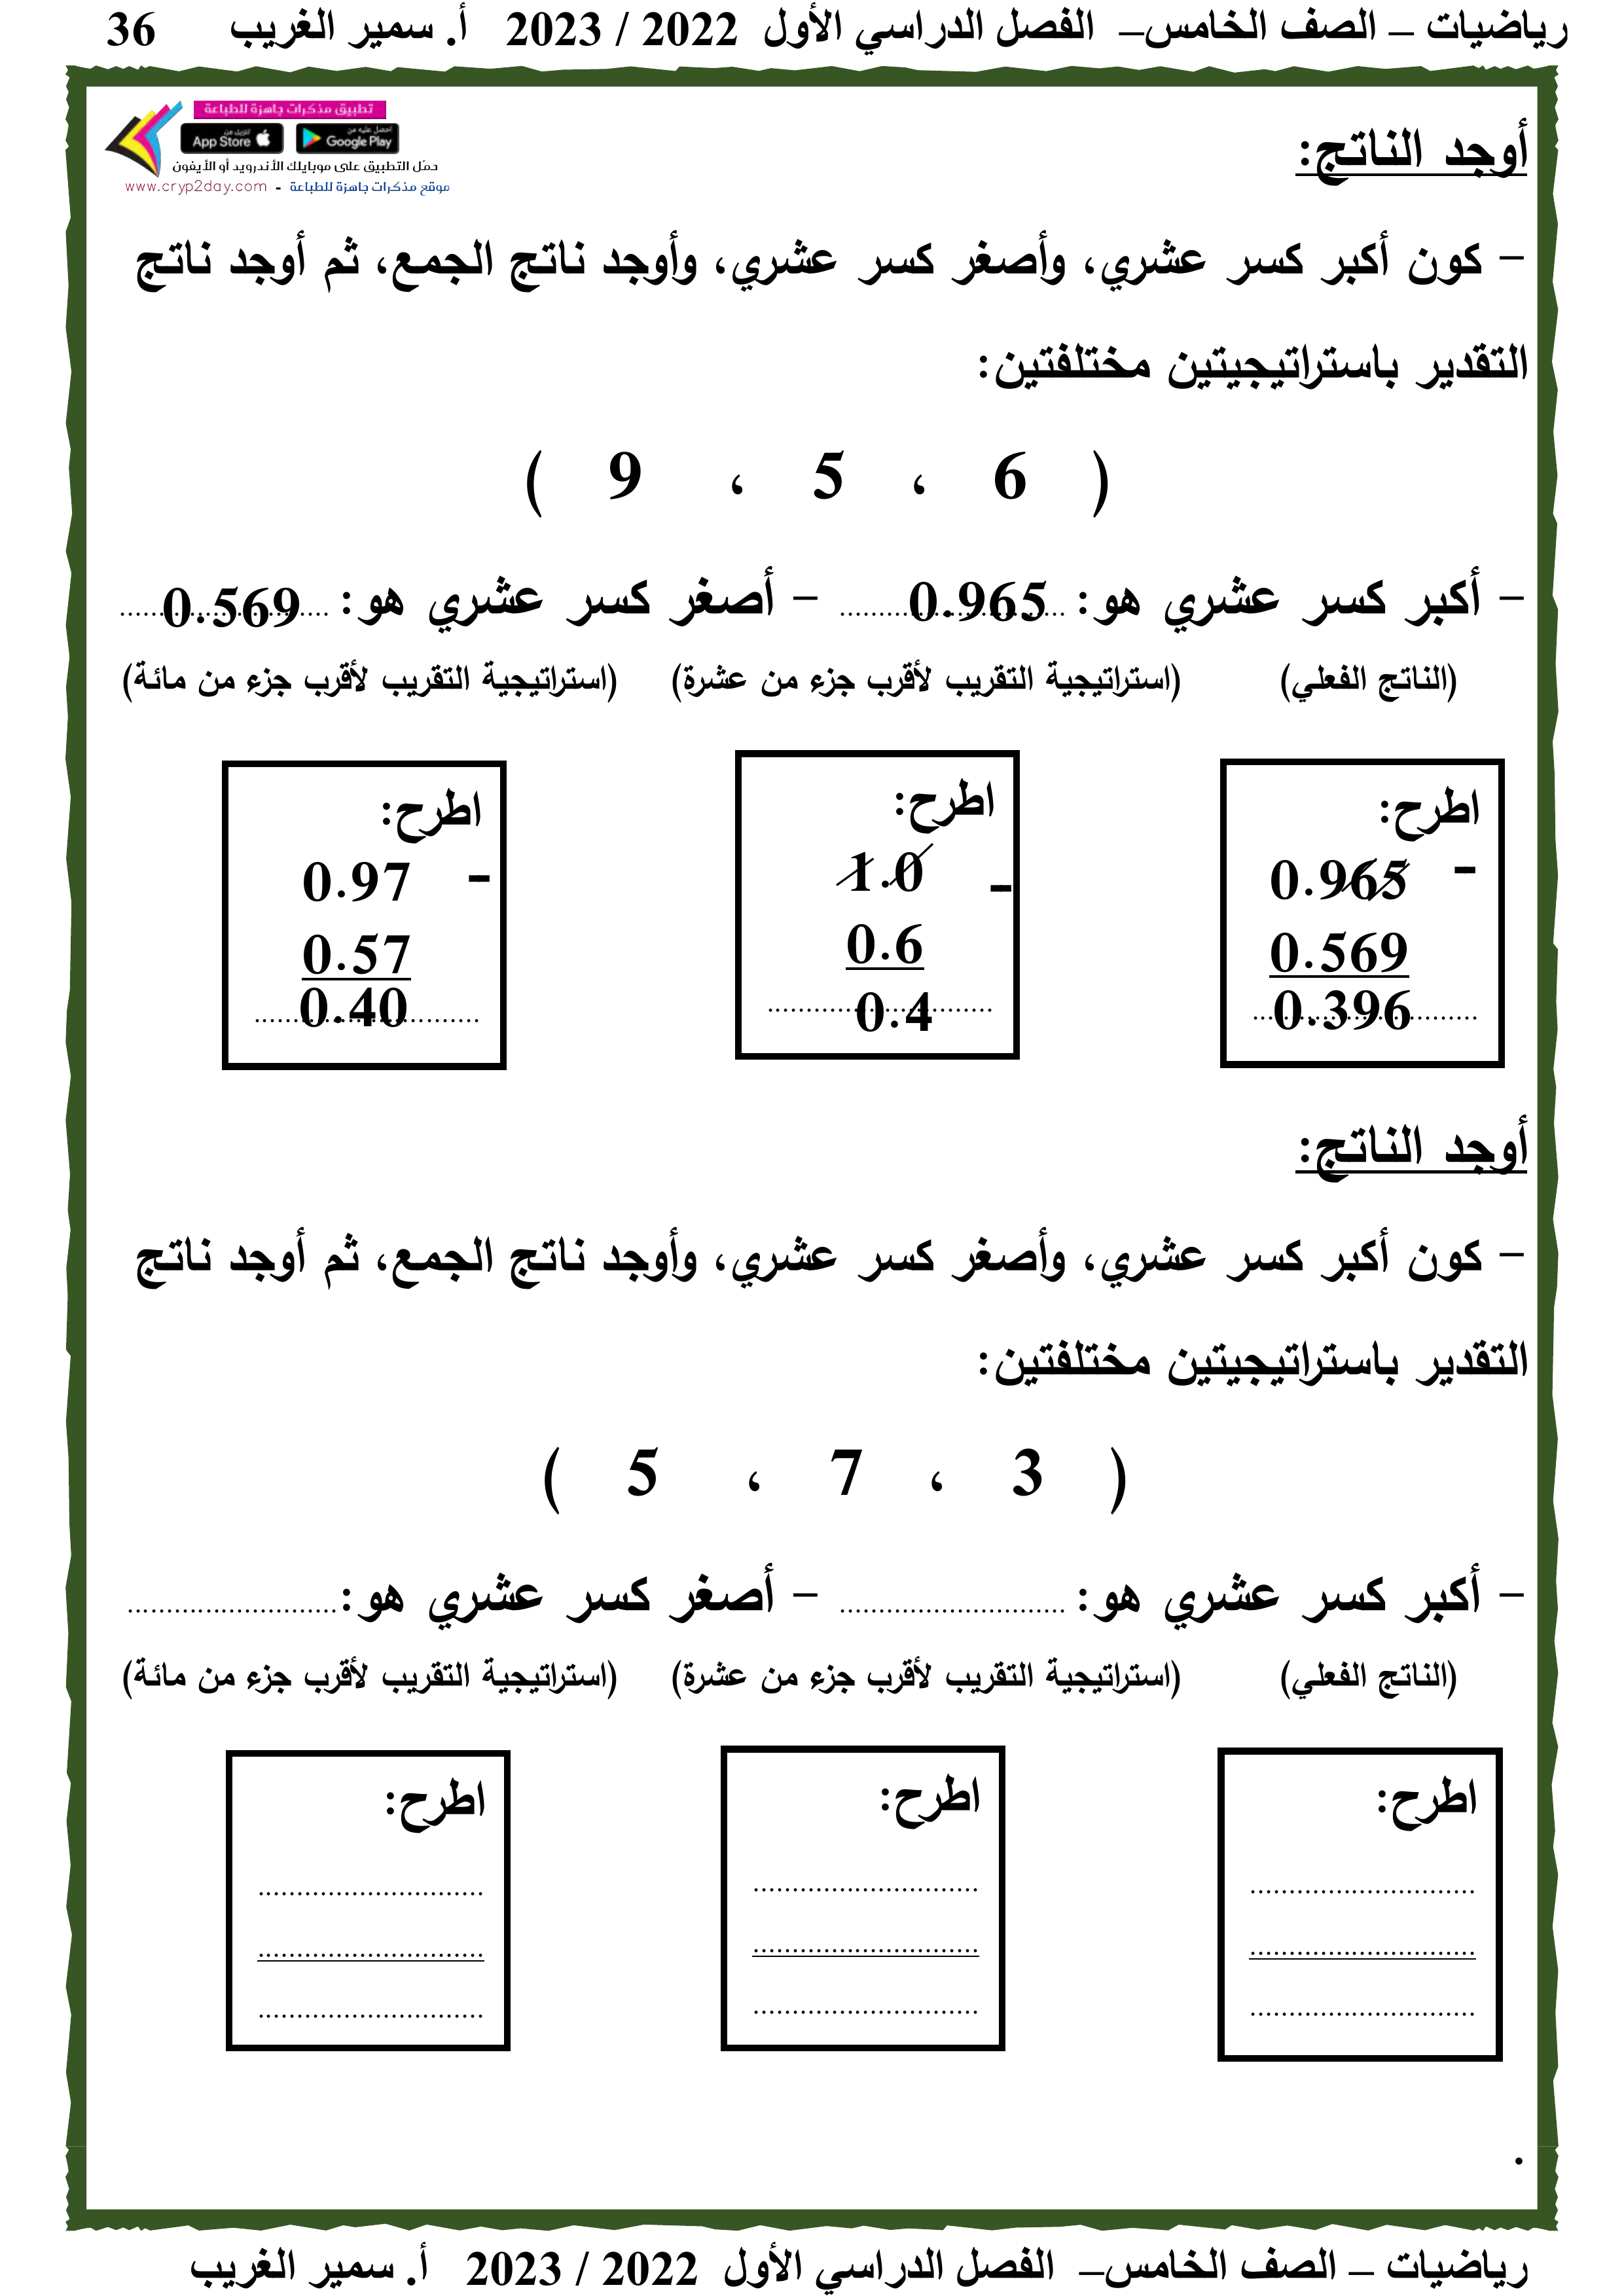 رياضيات – الصف الخامس– الفصل الدراسي الأول 2022 / 2023 أ. سمير الغريب 36
تطبيق مذكرات جاهزة للطباعة
احصل عليه من Google Play تنزيل من App Store
حمّل التطبيق على موبايلك الأندرويد أو الأيفون
موقع مذكرات جاهزة للطباعة - www.cryp2day.com
أوجد الناتج:
– كون أكبر كسر عشري، وأصغر كسر عشري، وأوجد ناتج الجمع، ثم أوجد ناتج
التقدير باستراتيجيتين مختلفتين:
( 6 ، 5 ، 9 )
– أكبر كسر عشري هو: 0.965 – أصغر كسر عشري هو: 0.569
(الناتج الفعلي) (استراتيجية التقريب لأقرب جزء من عشرة) (استراتيجية التقريب لأقرب جزء من مائة)
اطرح:
0.965 -
0.569
0.396
اطرح:
1.0 -
0.6
0.4
اطرح:
0.97 -
0.57
0.40
أوجد الناتج:
– كون أكبر كسر عشري، وأصغر كسر عشري، وأوجد ناتج الجمع، ثم أوجد ناتج
التقدير باستراتيجيتين مختلفتين:
( 3 ، 7 ، 5 )
– أكبر كسر عشري هو: ............................. – أصغر كسر عشري هو:...........................
(الناتج الفعلي) (استراتيجية التقريب لأقرب جزء من عشرة) (استراتيجية التقريب لأقرب جزء من مائة)
اطرح:
اطرح:
اطرح:
.
رياضيات – الصف الخامس– الفصل الدراسي الأول 2022 / 2023 أ. سمير الغريب